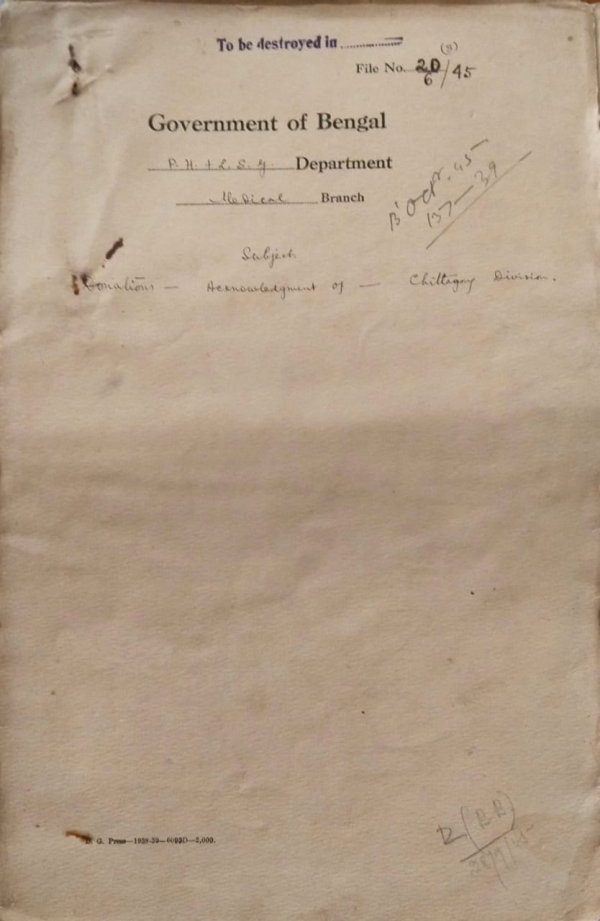 To be destroyed in ..............
(S)
File No. 20/6/45
Government of Bengal
P. H. + L. S. G. Department
Medical Branch
B' Oct. 45
137—39
Subject.
Donations — Acknowledgment of — Chittagong Division.
G. Press—1938-39—6092D—2,000.
(BB)